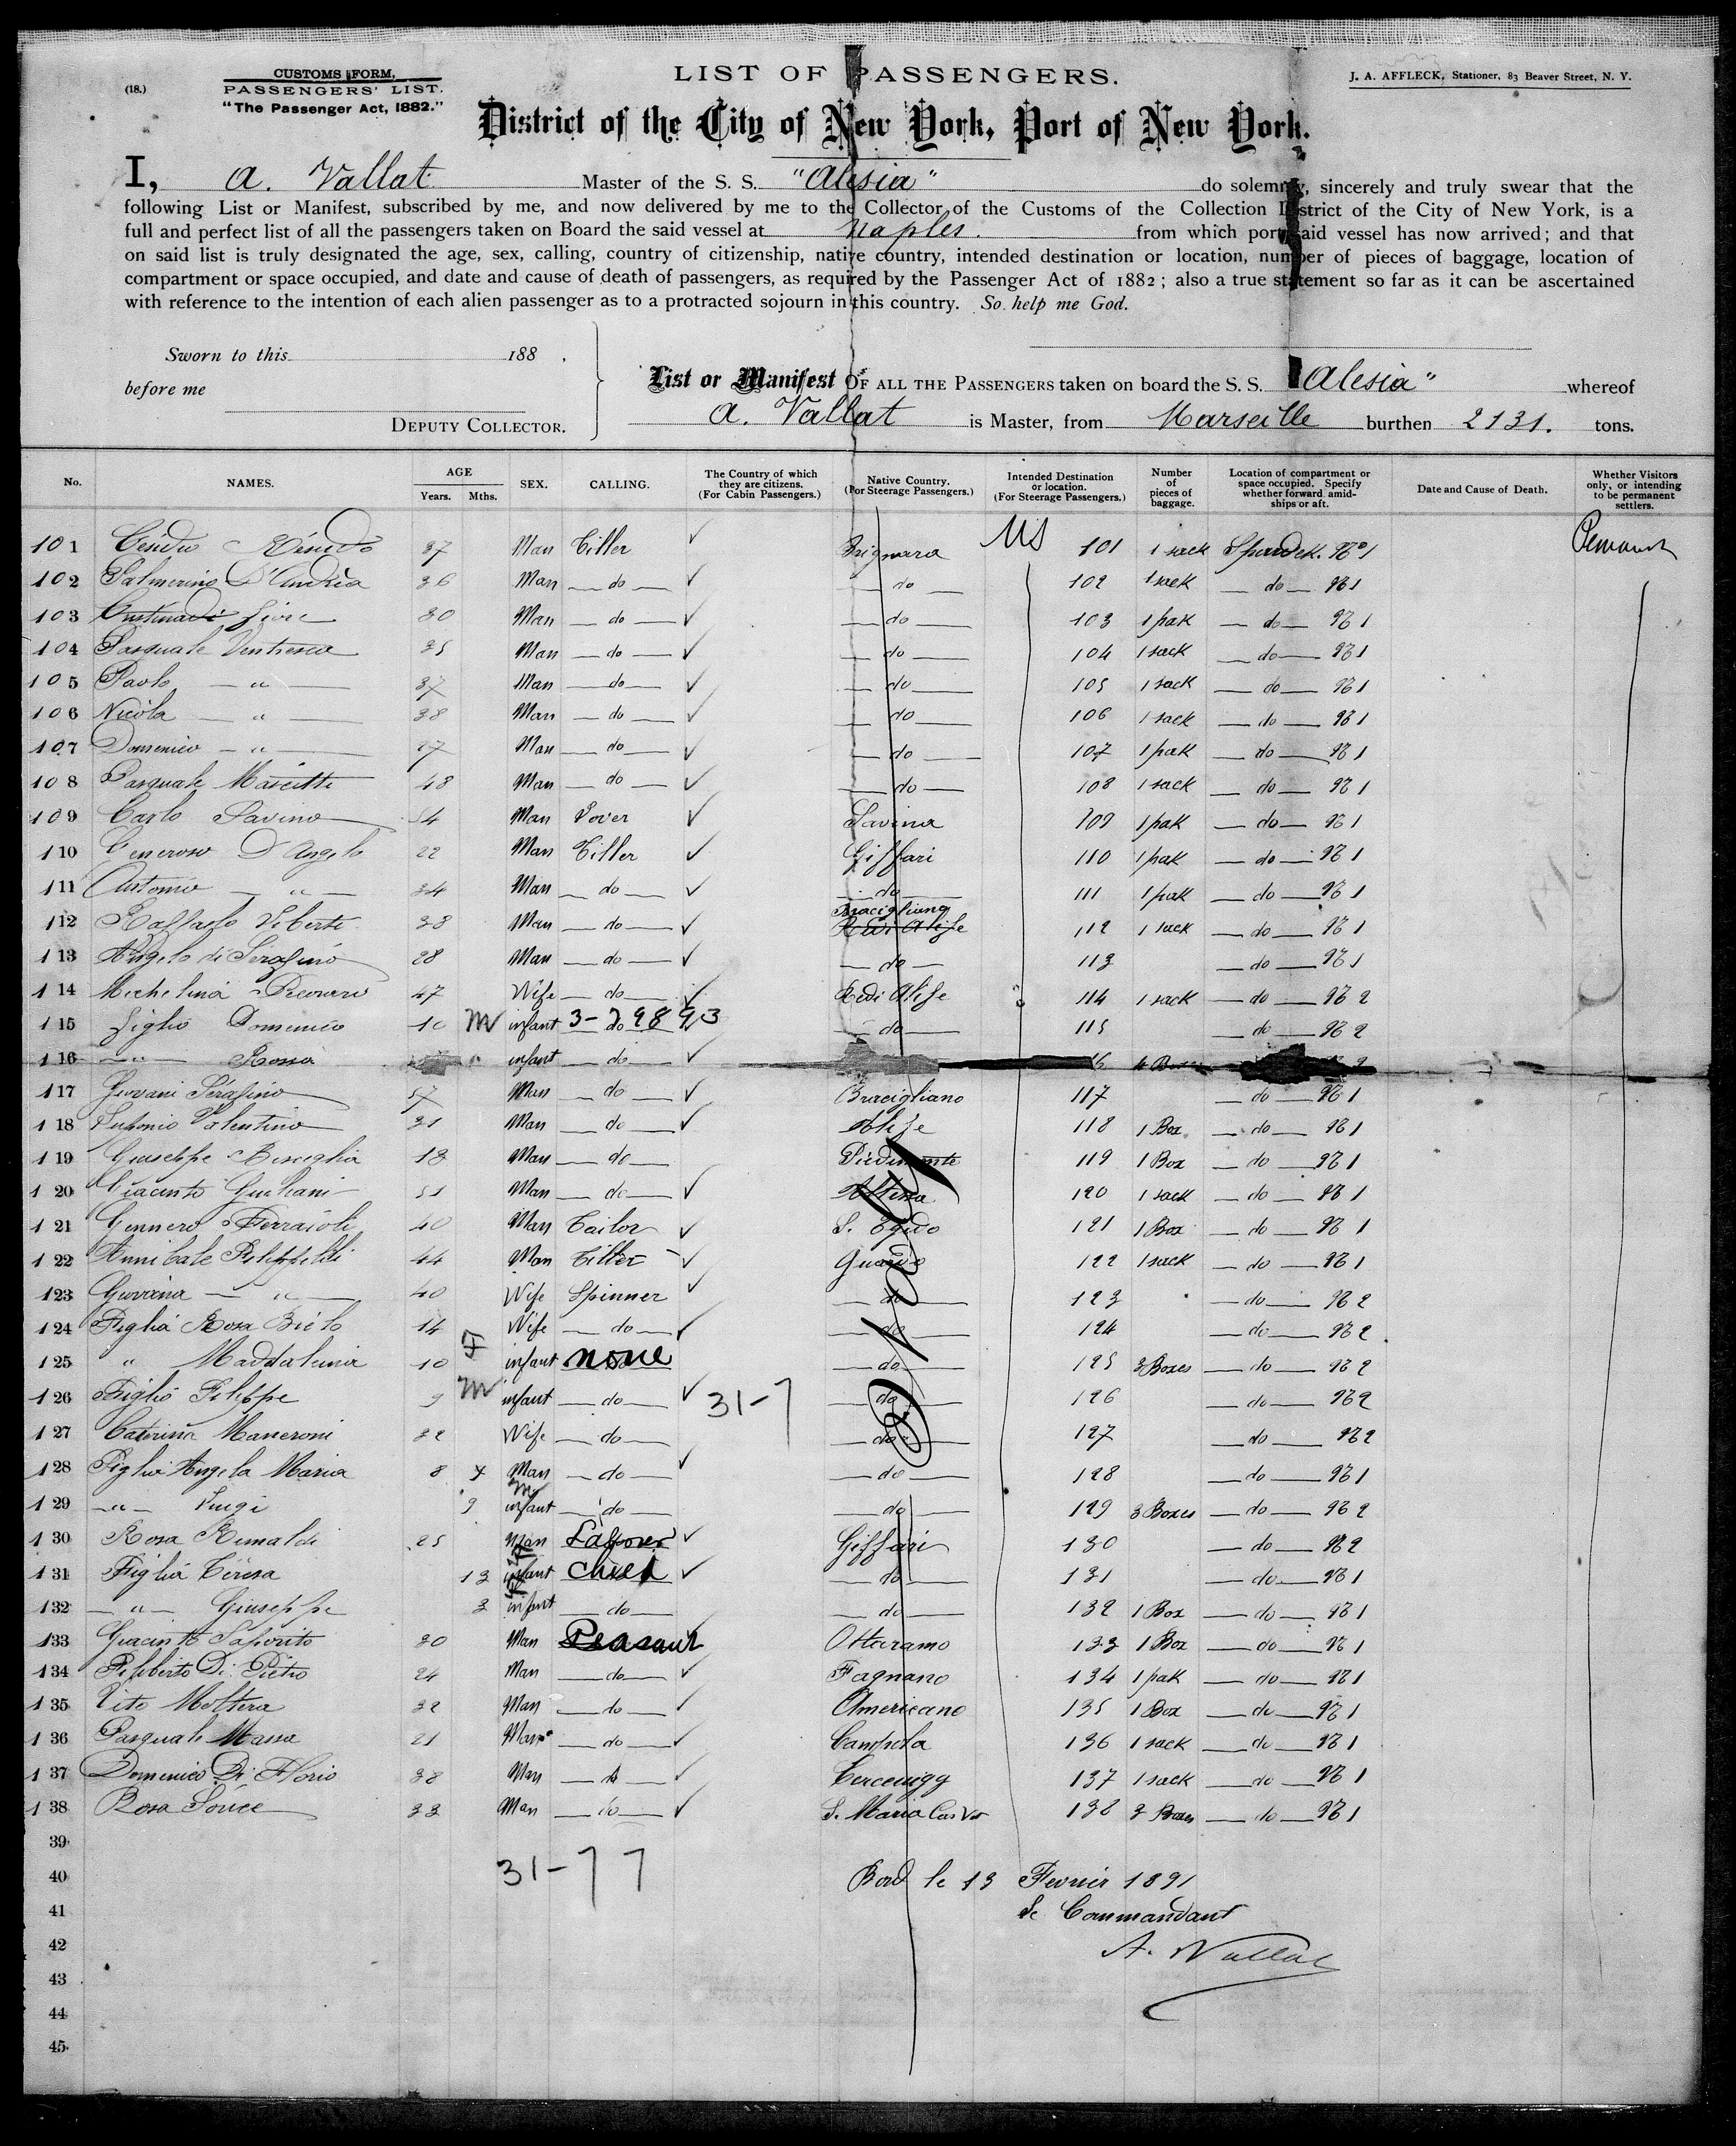 (18.)
CUSTOMS FORM,
PASSENGERS' LIST.
"The Passenger Act, 1882."
LIST OF PASSENGERS.
J. A. AFFLECK, Stationer, 83 Beaver Street, N. Y.
District of the City of New York, Port of New York.
I, A. Vallat Master of the S. S. "Alesia" do solemnly, sincerely and truly swear that the
following List or Manifest, subscribed by me, and now delivered by me to the Collector of the Customs of the Collection District of the City of New York, is a
full and perfect list of all the passengers taken on Board the said vessel at Naples. from which port said vessel has now arrived; and that
on said list is truly designated the age, sex, calling, country of citizenship, native country, intended destination or location, number of pieces of baggage, location of
compartment or space occupied, and date and cause of death of passengers, as required by the Passenger Act of 1882; also a true statement so far as it can be ascertained
with reference to the intention of each alien passenger as to a protracted sojourn in this country. So help me God.
Sworn to this 188 .
before me
DEPUTY COLLECTOR.
List or Manifest OF ALL THE PASSENGERS taken on board the S. S. Alesia" whereof
A. Vallat is Master, from Marseille burthen 2131. tons.
No. NAMES. AGE Years. Mths. SEX. CALLING. The Country of which they are citizens. (For Cabin Passengers.) Native Country. (For Steerage Passengers.) Intended Destination or location. (For Steerage Passengers.) Number of pieces of baggage. Location of compartment or space occupied. Specify whether forward, amidships or aft. Date and Cause of Death. Whether Visitors only, or intending to be permanent settlers.
101 37 Man Tiller US 101 1 sack No 1
102 Palmerino D'Andrea 36 Man do do 102 1 sack do No 1
103 30 Man do do 103 1 pak do No 1
104 Pasquale Ventresca 35 Man do do 104 1 sack do No 1
105 Paolo " 37 Man do do 105 1 sack do No 1
106 Nicola " 38 Man do do 106 1 sack do No 1
107 Domenico " Man do do 107 1 pak do No 1
108 Pasquale Mascitti 48 Man do do 108 1 sack do No 1
109 Carlo Savino 54 Man Savina 109 1 pak do No 1
110 Generoso D'Angelo 22 Man Tiller Giffari 110 1 pak do No 1
111 Antonio " 34 Man do do 111 1 pak do No 1
112 Raffaelo Viberti 38 Man do Bracigliano 112 1 sack do No 1
113 Angelo di Serafino 28 Man do do 113 do No 1
114 Michelina 47 Wife do Alife 114 1 sack do No 2
115 figlio Domenico 10 M infant 3-29893 do do 115 do No 2
116 " Rossa infant do
117 Giovani Serafino 57 Man do Bracigliano 117 do No 1
118 Valentino 31 Man do Alife 118 1 Box do No 1
119 Giuseppe Bisceglia 18 Man do Piedimonte 119 1 Box do No 1
120 Giacinto Giuliani 51 Man do 120 1 sack do No 1
121 Gennero Ferraioli 40 Man Tailor S. Egido 121 1 Box do No 1
122 Annibale 44 Man Tiller 122 1 sack do No 1
123 " 40 Wife Spinner do 123 do No 2
124 Figlia Rosa 14 Wife do do 124 do No 2
125 " Maddalena 10 F infant none do 125 3 Boxes do No 2
126 Figlio Filippe 9 M infant do 31-7 do 126 do No 2
127 Caterina Maneroni 32 Wife do do 127 do No 2
128 Figlia Angela Maria 8 f Man do do 128 do No 1
129 " Luigi 9 m infant do do 129 3 Boxes do No 2
130 Rosa Rinaldi 25 Man Laborer Giffari 130 do No 2
131 Figlia Teresa 13 infant child do 131 do No 1
132 " Giuseppe 3 infant do do 132 1 Box do No 1
133 Giacinto Saporito 30 Man Peasant Ottaramo 133 1 Box do No 1
134 Filiberto Di Pietro 24 Man do Fagnano 134 1 pak do No 1
135 Vito Moltera 32 Man do Americano 135 1 Box do No 1
136 Pasquale Massa 21 Man do Campola 136 1 sack do No 1
137 Domenico Di Florio 38 Man do 137 1 sack do No 1
138 Rosa 33 Man do S. Maria 138 3 Boxes do No 1
39
40 31-77 Bord le 13 Fevrier 1891
41 Le Commandant
42 A. Vallat
43
44
45